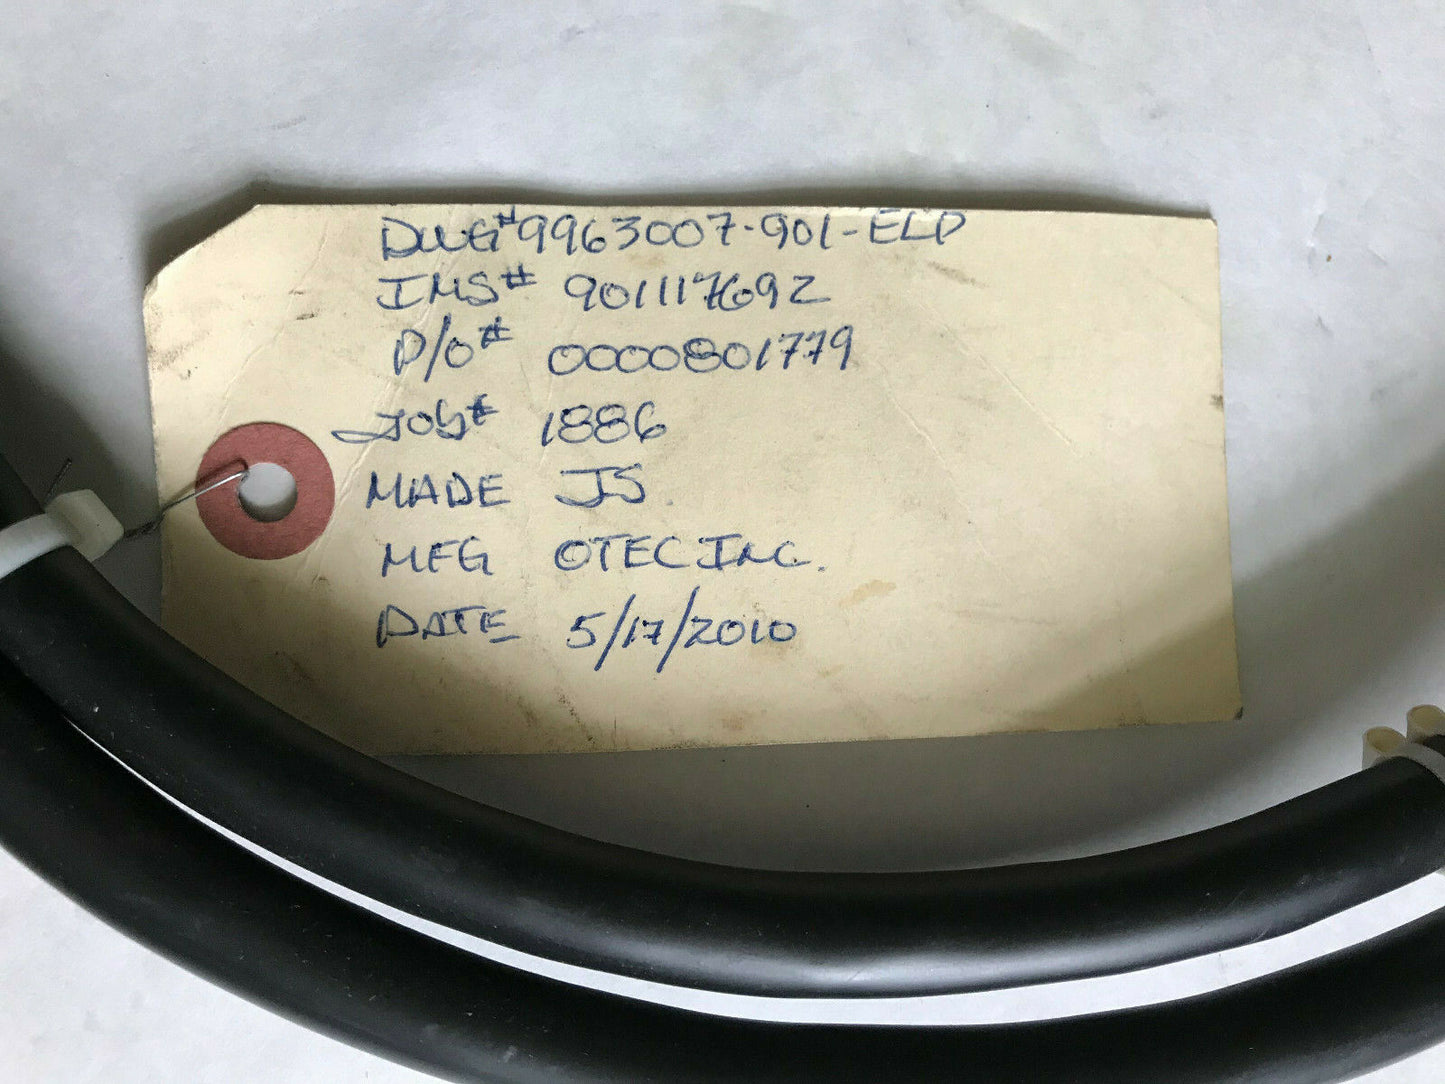 DWG# 9963007-901-ELP
IMS# 901117692
P/O# 0000801779
JOB# 1886
MADE JS.
MFG OTEC INC.
DATE 5/17/2010